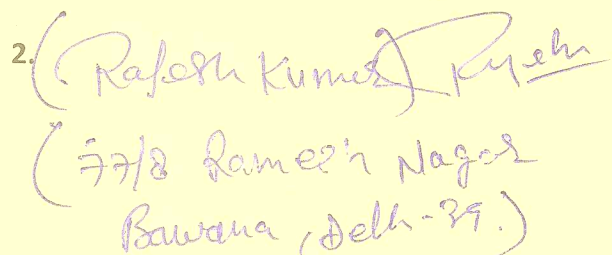 2. (Rajesh Kumar) Rajesh
(77/8 Ramesh Nagar
Bawana, Delh-39.)